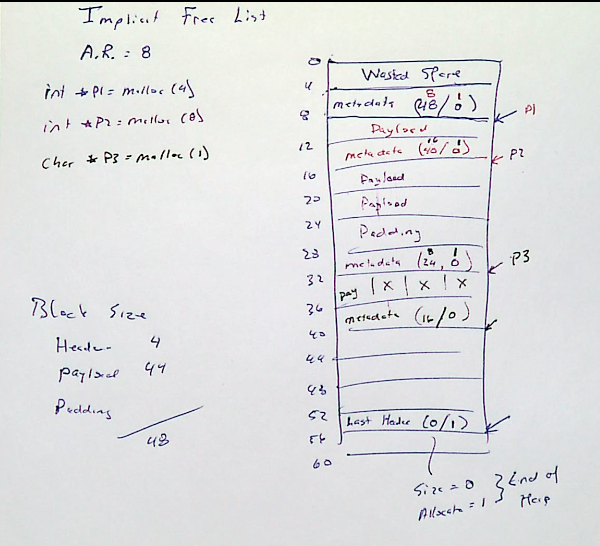 Implicit Free List
A.R. = 8
int *P1 = malloc (4)
int *P2 = malloc (8)
char *P3 = malloc (1)
Block Size
Header 4
payload 44
Padding
48
0
Wasted Space
4
metadata (48/0) 8 1
8
P1
Payload
12
metadata (40/0) 16 1
P2
16
Payload
20
Payload
24
Padding
28
metadata (24, 0) 8 1
P3
32
pay | X | X | X
36
metadata (16/0)
40
44
48
52
Last Header (0/1)
56
60
Size = 0
Allocate = 1
End of
Heap